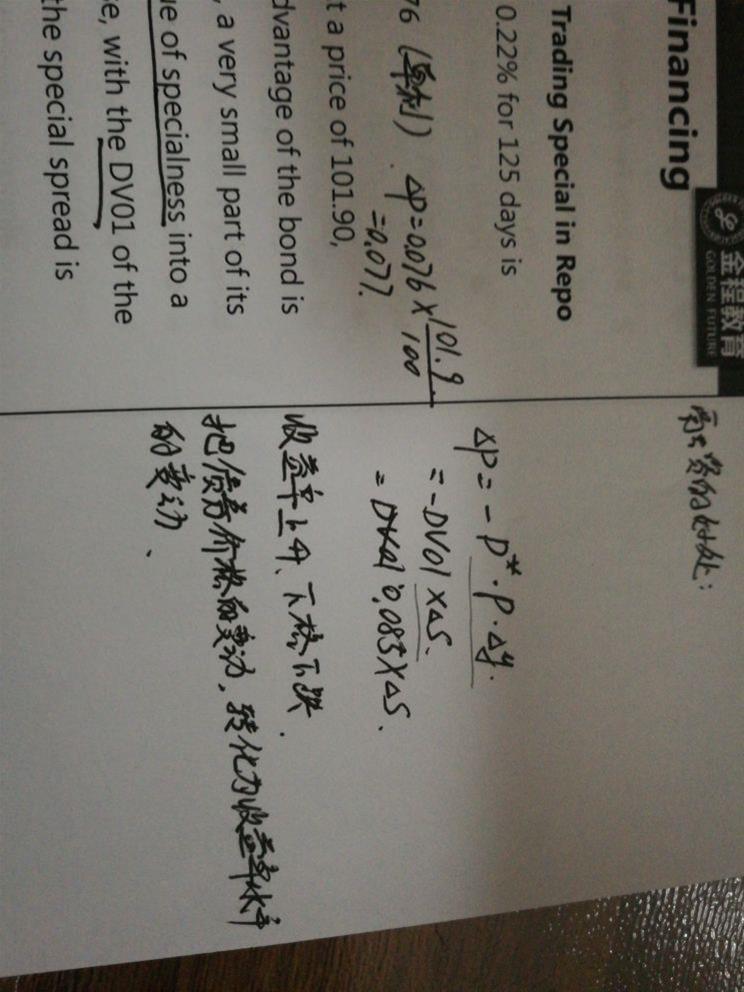 Financing
金程教育
GOLDEN FUTURE
Trading Special in Repo
0.22% for 125 days is
76 (单利). ΔP=0.076×101.9/100
=0.077.
t a price of 101.90,
dvantage of the bond is
, a very small part of its
ue of specialness into a
e, with the DV01 of the
the special spread is
的好处:
ΔP=-D*·P·Δy.
=-DV01×ΔS.
=DV01 0.085×ΔS.
收益率上升、价格下跌.
把债券价格的变动, 转化为收益率水平
的变动、